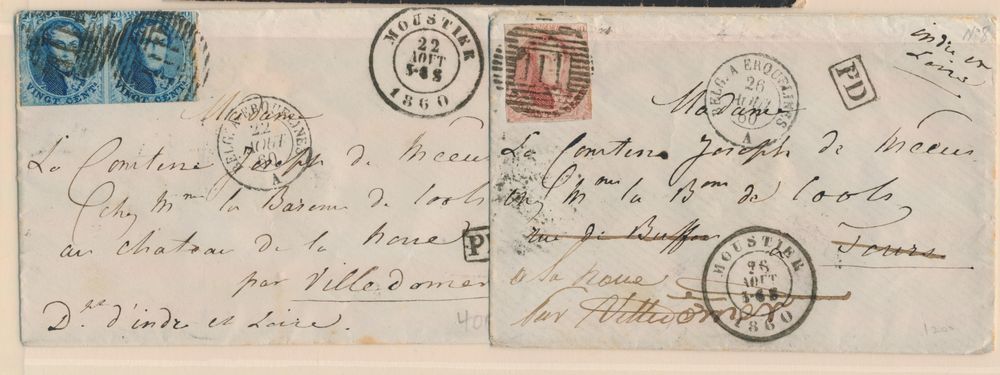 VINGT CENT. VINGT CENT.
MOUSTIER
22
AOUT
1860
BELG. A ERQUELINES
22
AOUT
60
A
Madame
La Comtesse Joseph de Meeus
Chez Mme la Baronne de Cools
au chateau de la Noue
par Villedomer
Dpt d'indre et Loire.
PD
400
indre et
Loire
N°8
BELG. A ERQUELINES
26
AOUT
60
A
PD
Madame
La Comtesse Joseph de Meeus
Mme la Bonne de Cools
rue de Buffon à Tours
à la noue
par Villedomer
MOUSTIER
26
AOUT
1860
1200